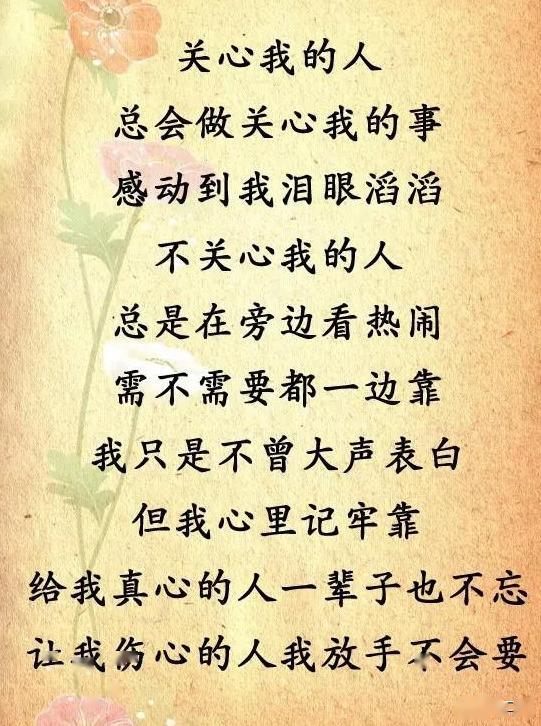 关心我的人
总会做关心我的事
感动到我泪眼滔滔
不关心我的人
总是在旁边看热闹
需不需要都一边靠
我只是不曾大声表白
但我心里记牢靠
给我真心的人一辈子也不忘
让我伤心的人我放手不会要